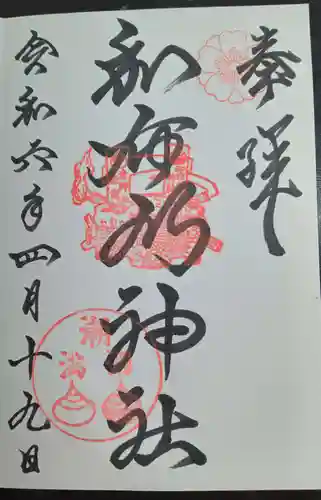 奉拝
和布刈神社
令和六年四月十九日